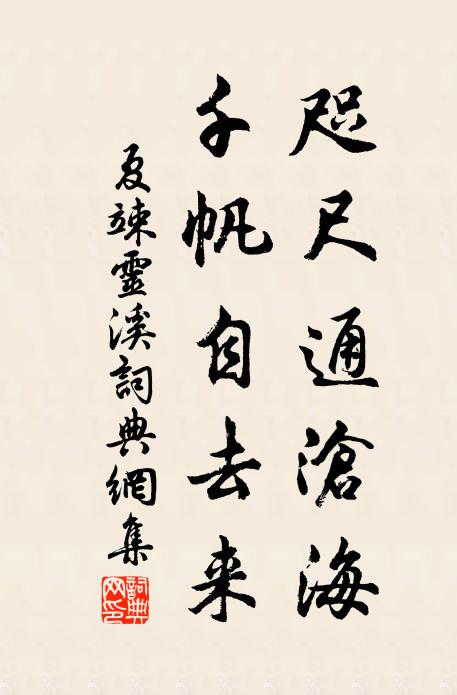 咫尺通滄海
千帆自去来
夏竦靈溪詞典網集
詞典網印